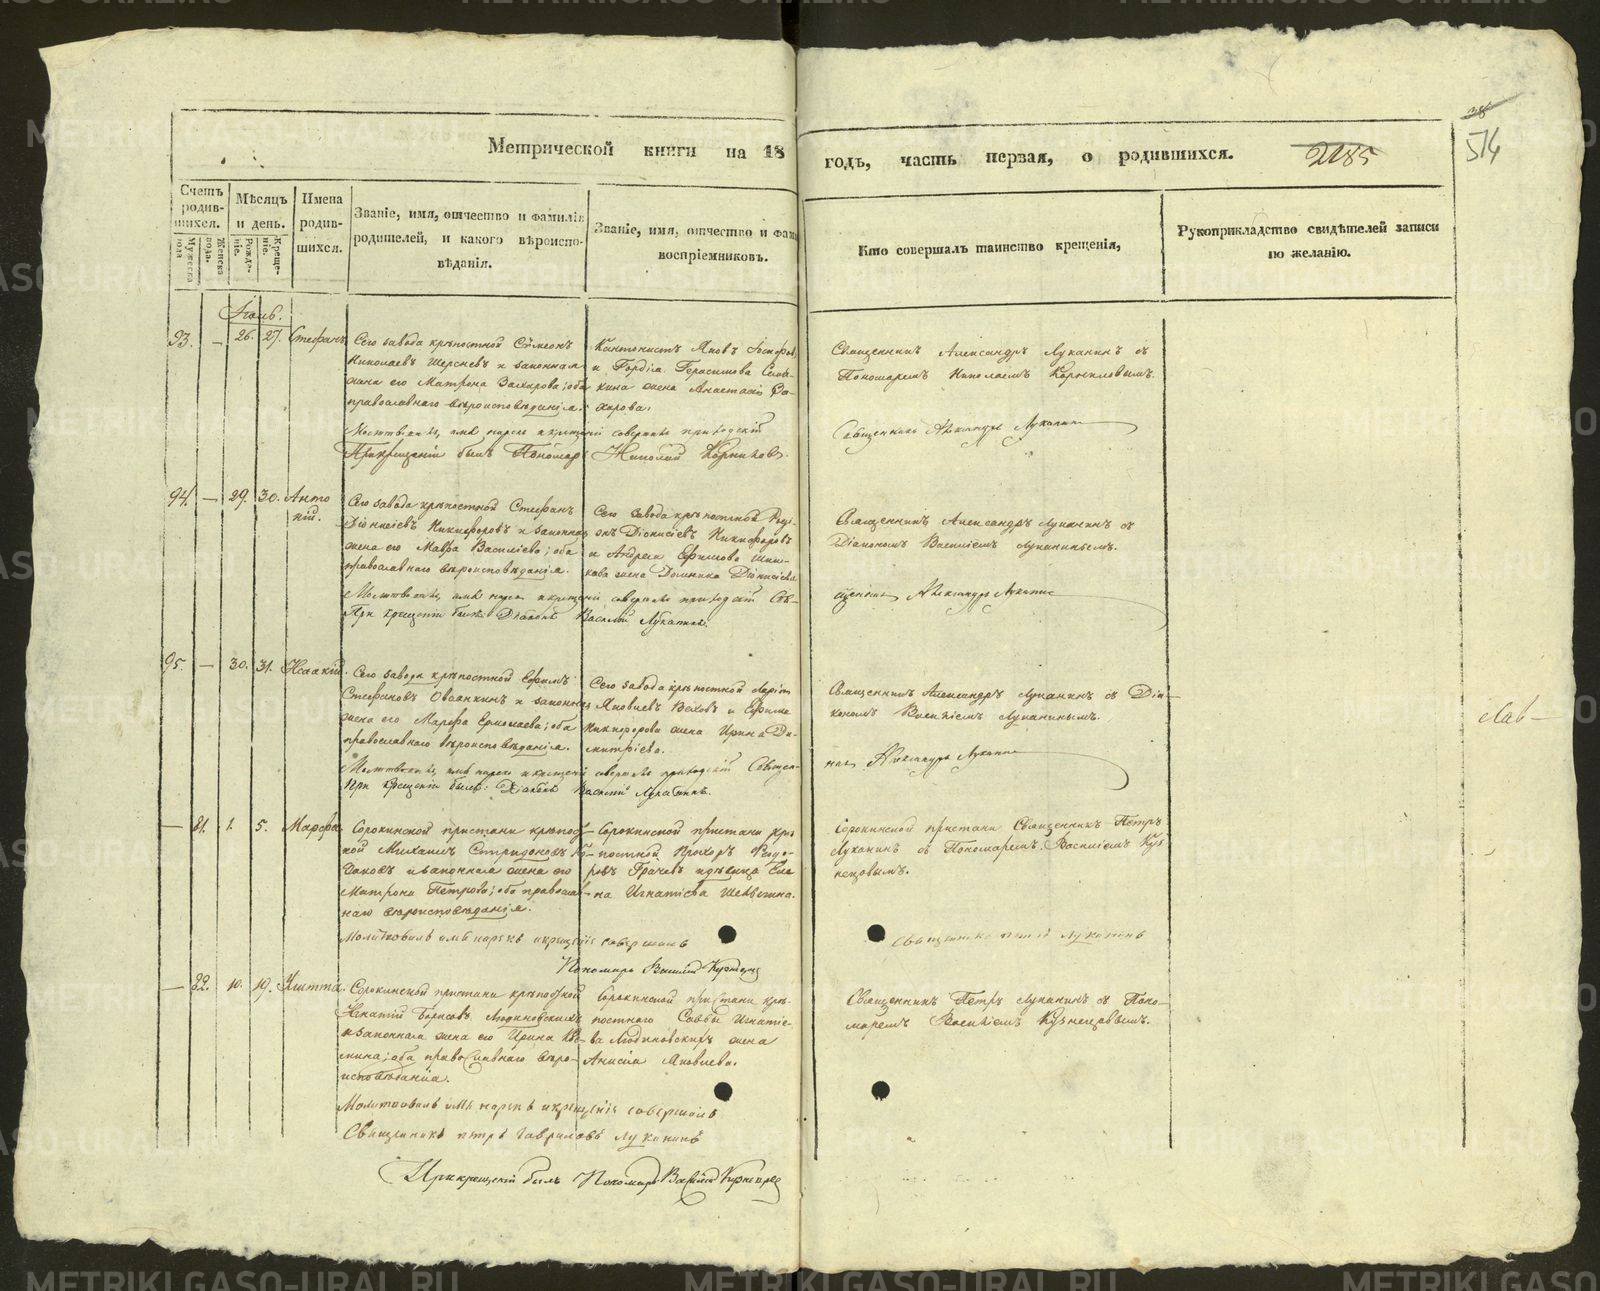 Метрической книги на 18 годъ, часть первая, о родившихся.
2185
514
Счетъ родившихся.
Мужеска пола.
Женска пола.
Мѣсяцъ и день.
Рожденіе.
Крещеніе.
Имена родившихся.
Званіе, имя, отчество и фамилія родителей, и какого вѣроисповѣданія.
Званіе, имя, отчество и фами воспріемниковъ.
Кто совершалъ таинство крещенія,
Рукоприкладство свидѣтелей записи по желанію.
93. — 26. 27. Стефанъ
Сего завода крѣпостной Сѵмеонъ
Николаевъ и законная
жена его Матрона Захарова; оба
православнаго вѣроисповѣданія.
Кантонистъ Яковъ
и Гордія Герасимова
кина жена Анастасія За-
харова.
Священникъ Александръ Луканинъ съ
Пономаремъ Николаемъ Корниловымъ.
имя нарекъ и крещеніе совершилъ приходскій
Священникъ Александръ Луканинъ
При крещеніи былъ Пономарь Николай
94. — 29. 30. Анто
ній.
Сего завода крѣпостной Стефанъ
Діонисіевъ Никифоровъ и законная
жена его Мавра Василіева; оба
православнаго вѣроисповѣданія.
Сего завода крѣпостной Роді-
онъ Діонисіевъ Никифоровъ
и Андрея Ефимова
кова жена Домника Діонисіева
Священникъ Александръ Луканинъ съ
Діакономъ Василіемъ Луканинымъ.
имя нарекъ и крещеніе совершилъ приходскій Свя-
щенникъ Александръ Луканинъ
При крещеніи былъ Діаконъ Василій Луканинъ.
95. — 30. 31. Исаакій.
Сего завода крѣпостной Ефимъ
Стефановъ Овсянкинъ и законная
жена его Марфа Ермолаева; оба
православнаго вѣроисповѣданія.
Сего завода крѣпостной
Яковлевъ и Ефима
Никифорова жена Ирина Ди-
митріева.
Священникъ Александръ Луканинъ съ Діа-
кономъ Василіемъ Луканинымъ.
имя нарекъ и крещеніе совершилъ приходскій Священ-
никъ Александръ Луканинъ
При крещеніи былъ: Діаконъ Василій Луканинъ.
— 81. 1. 5. Марфа
Сорокинской пристани крѣпост-
ной Михаилъ
и законная жена его
Матрона Петрова; оба православ-
наго вѣроисповѣданія.
Сорокинской пристани крѣ-
постной Прохоръ Федо-
ровъ Грачевъ и дѣвица Еле
на Игнатіева
Сорокинской пристани Священникъ Петръ
Луканинъ съ Пономаремъ Василіемъ Куз
нецовымъ.
Молитвовалъ имя нарекъ и крещеніе совершилъ
Священникъ Петръ Луканинъ
Пономарь Василій Кузнецовъ
— 82. 10. 19. Улитта.
Сорокинской пристани крѣпостной
Игнатій Борисовъ Людиновскихъ
и законная жена его Ирина
мина; оба православнаго вѣро-
исповѣданія.
Сорокинской пристани крѣ-
постнаго Саввы Игнатіе-
ва Людиновскихъ жена
Анисія Яковлева.
Священникъ Петръ Луканинъ съ Поно-
маремъ Василіемъ Кузнецовымъ.
Молитвовалъ имя нарекъ и крещеніе совершилъ
Священникъ Петръ Гавриловъ Луканинъ
При крещеніи былъ Пономарь Василій Кузнецовъ
METRIKI.GASO-URAL.RU